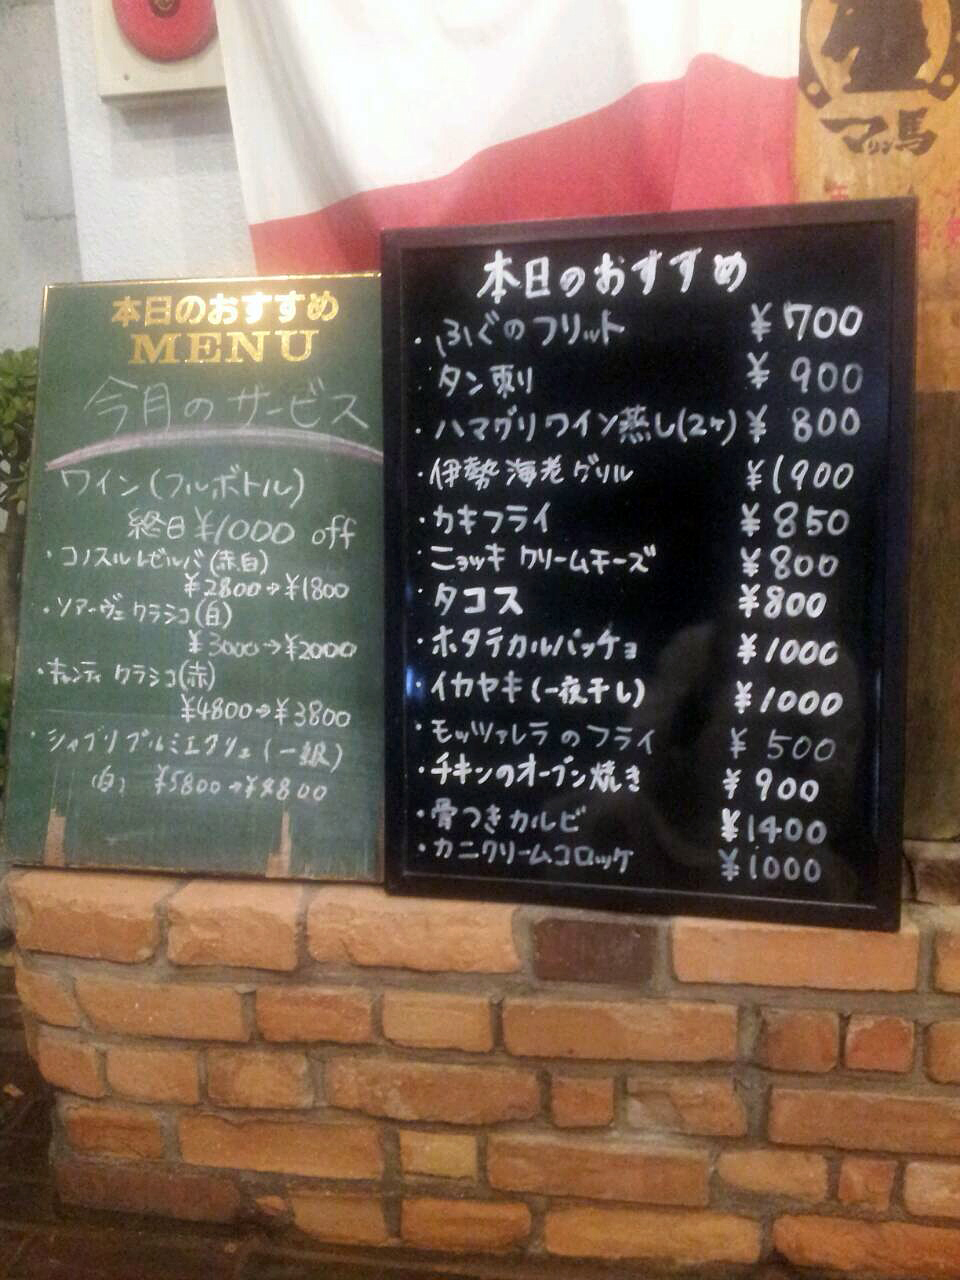 マリン馬
本日のおすすめ
MENU
今月のサービス
ワイン(フルボトル)
終日¥1000 off
・コノスルレゼルバ(赤白)
¥2800→¥1800
・ソアーヴェクラシコ(白)
¥3000→¥2000
・キャンティ クラシコ(赤)
¥4800→¥3800
・シャブリプルミエクリュ(一級)
(白) ¥5800→¥4800
本日のおすすめ
・ふぐのフリット ¥700
タン刺り ¥900
・ハマグリワイン蒸し(2ヶ) ¥800
・伊勢海老グリル ¥1900
・カキフライ ¥850
・ニョッキ クリームチーズ ¥800
・タコス ¥800
・ホタテカルパッチョ ¥1000
・イカヤキ(一夜干し) ¥1000
・モッツァレラのフライ ¥500
・チキンのオーブン焼き ¥900
・骨つきカルビ ¥1400
・カニクリームコロッケ ¥1000